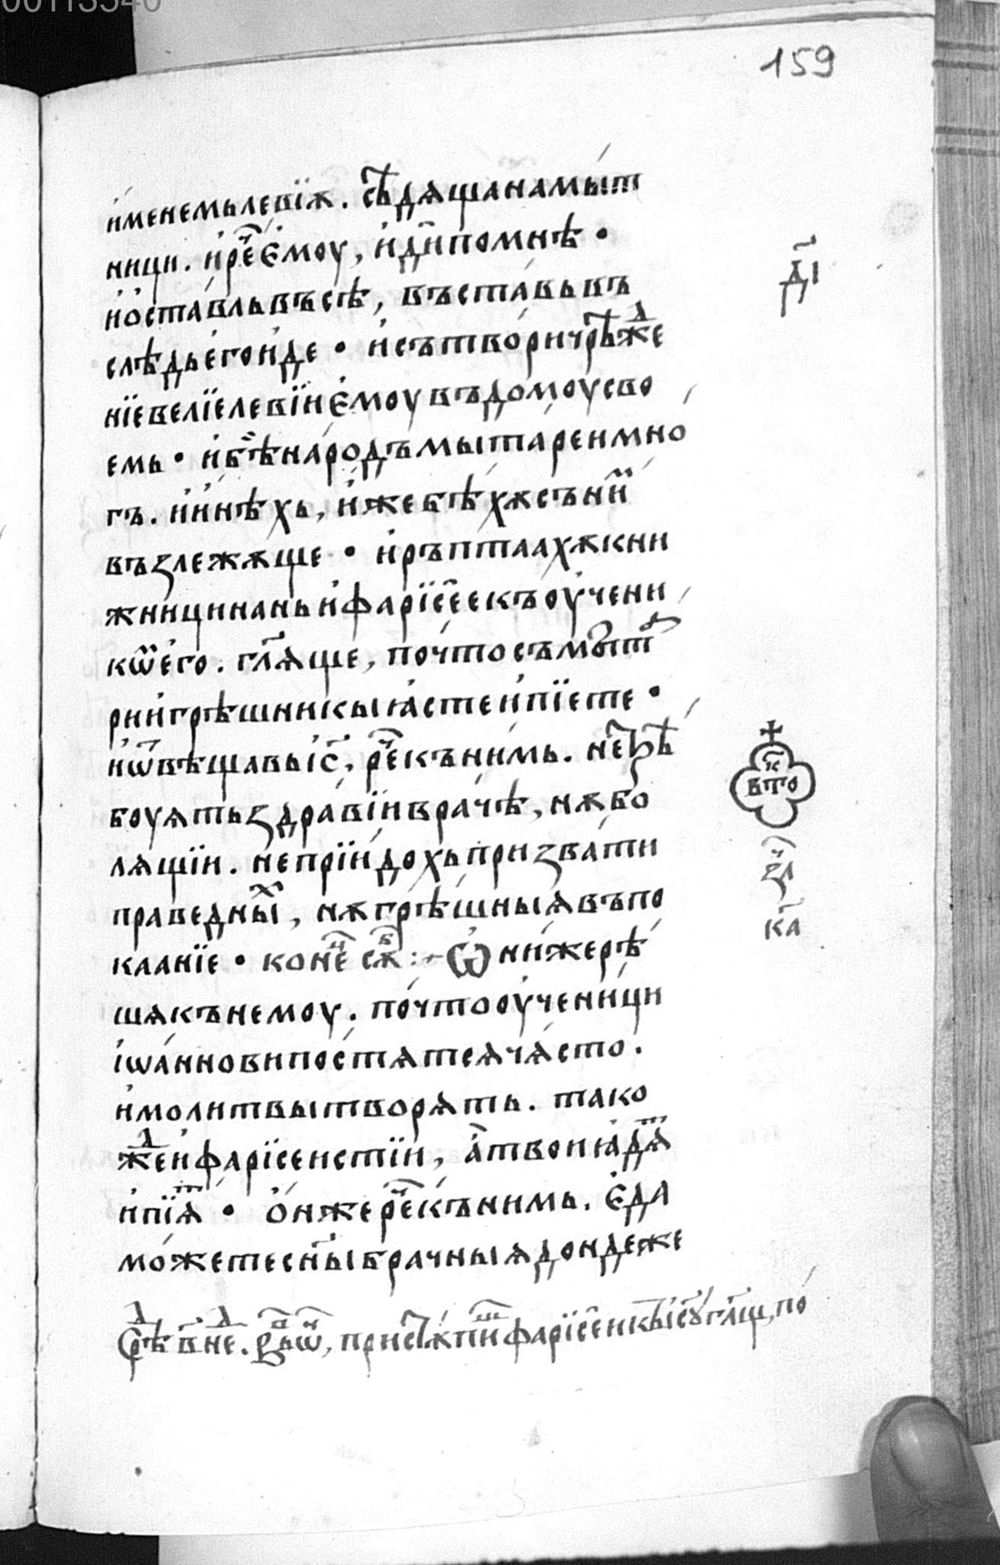 159
именемь левїѫ. сѣдѧща на мыт
ници. и рече емоу, иди по мнѣ •
и оставль въсѣ, въставь въ
слѣдь его иде • и сътвори чрѣжⷣе
нїе велїе левїи емоу въ домоу сво
емь • и бѣ народъ мытарей мно
гъ. и инѣхь, иже бѣхѫ съ ниⷨ
възлежѫще • и ръптаахѫ кни
жници на нь и фарїсее къ оучени
кѡⷨ его. гл҃ѧще, почто съ мытⷶ
ри и грѣшникы ꙗсте и пїете •
и ѿвѣщавь і҃с, рече къ нимь. не трѣ
боуѧть здравїи врачѣ, нѫ бо
лѧщїи. не прїидохь призвати
праведныⷯ, нѫ грѣшныѧ въ по
каанїе • конеⷰ сѫⷠ :~ Ѡни же рѣ
шѧ къ немоу. почто оученици
іѡаннови постѧтсѧ чѧсто.
и молитвы творѧть. тако
жⷣе и фарїсеистїи, а твои ꙗдѧⷮ
и пїѧⷮ • он же рече къ нимь. Еда
можете сн҃ы брачныѧ дондеже
д҃і
к
впⷮо
зⷱл
ка
Срѣⷣ в҃ неⷣ. въⷬ ѡⷩ, пристѫпиⷲ фарїсеи къ і҃су гл҃щ, по